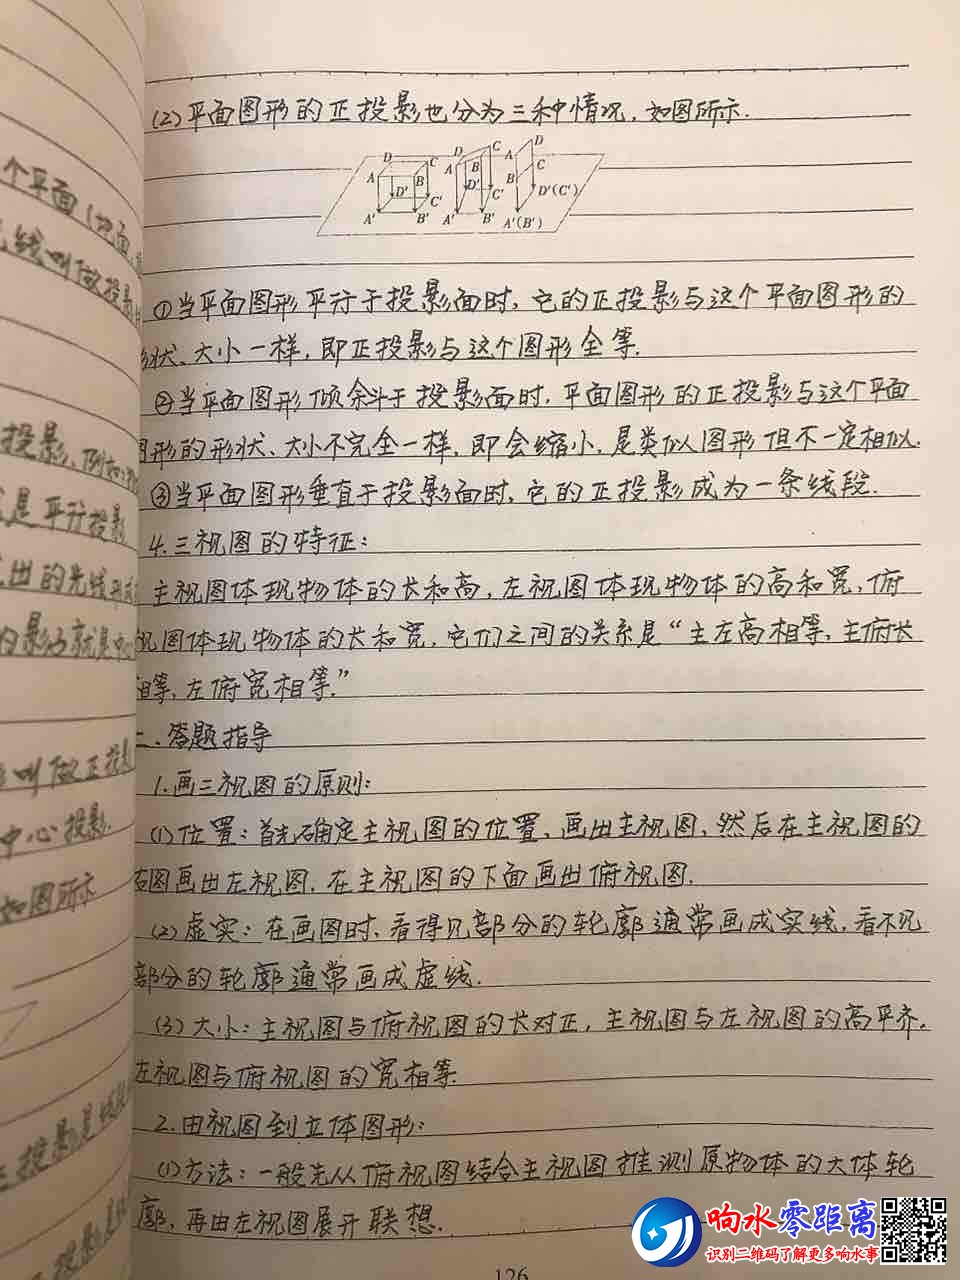 (2)平面图形的正投影也分为三种情况,如图所示.
D C A B D' C' A' B'
D C A B D' C' A' B'
D A C B D'(C') A'(B')
①当平面图形平行于投影面时,它的正投影与这个平面图形的
形状、大小一样,即正投影与这个图形全等.
②当平面图形倾斜于投影面时,平面图形的正投影与这个平面
图形的形状、大小不完全一样,即会缩小,是类似图形但不一定相似.
③当平面图形垂直于投影面时,它的正投影成为一条线段.
4.三视图的特征:
主视图体现物体的长和高,左视图体现物体的高和宽,俯
视图体现物体的长和宽,它们之间的关系是“主左高相等,主俯长
相等,左俯宽相等.”
二.答题指导
1.画三视图的原则:
(1)位置:首先确定主视图的位置、画出主视图,然后在主视图的
右图画出左视图.在主视图的下面画出俯视图.
(2)虚实:在画图时,看得见部分的轮廓通常画成实线,看不见
部分的轮廓通常画成虚线.
(3)大小:主视图与俯视图的长对正,主视图与左视图的高平齐,
左视图与俯视图的宽相等.
2.由视图到立体图形:
(1)方法:一般先从俯视图结合主视图推测原物体的大体轮
廓,再由左视图展开联想.
126
个平面(地面
线叫做投影
投影,例如
是平行投影
出的光线形成
影子就是中心
叫做正投影
中心投影.
如图所示
投影是线段
响水零距离
识别二维码了解更多响水事